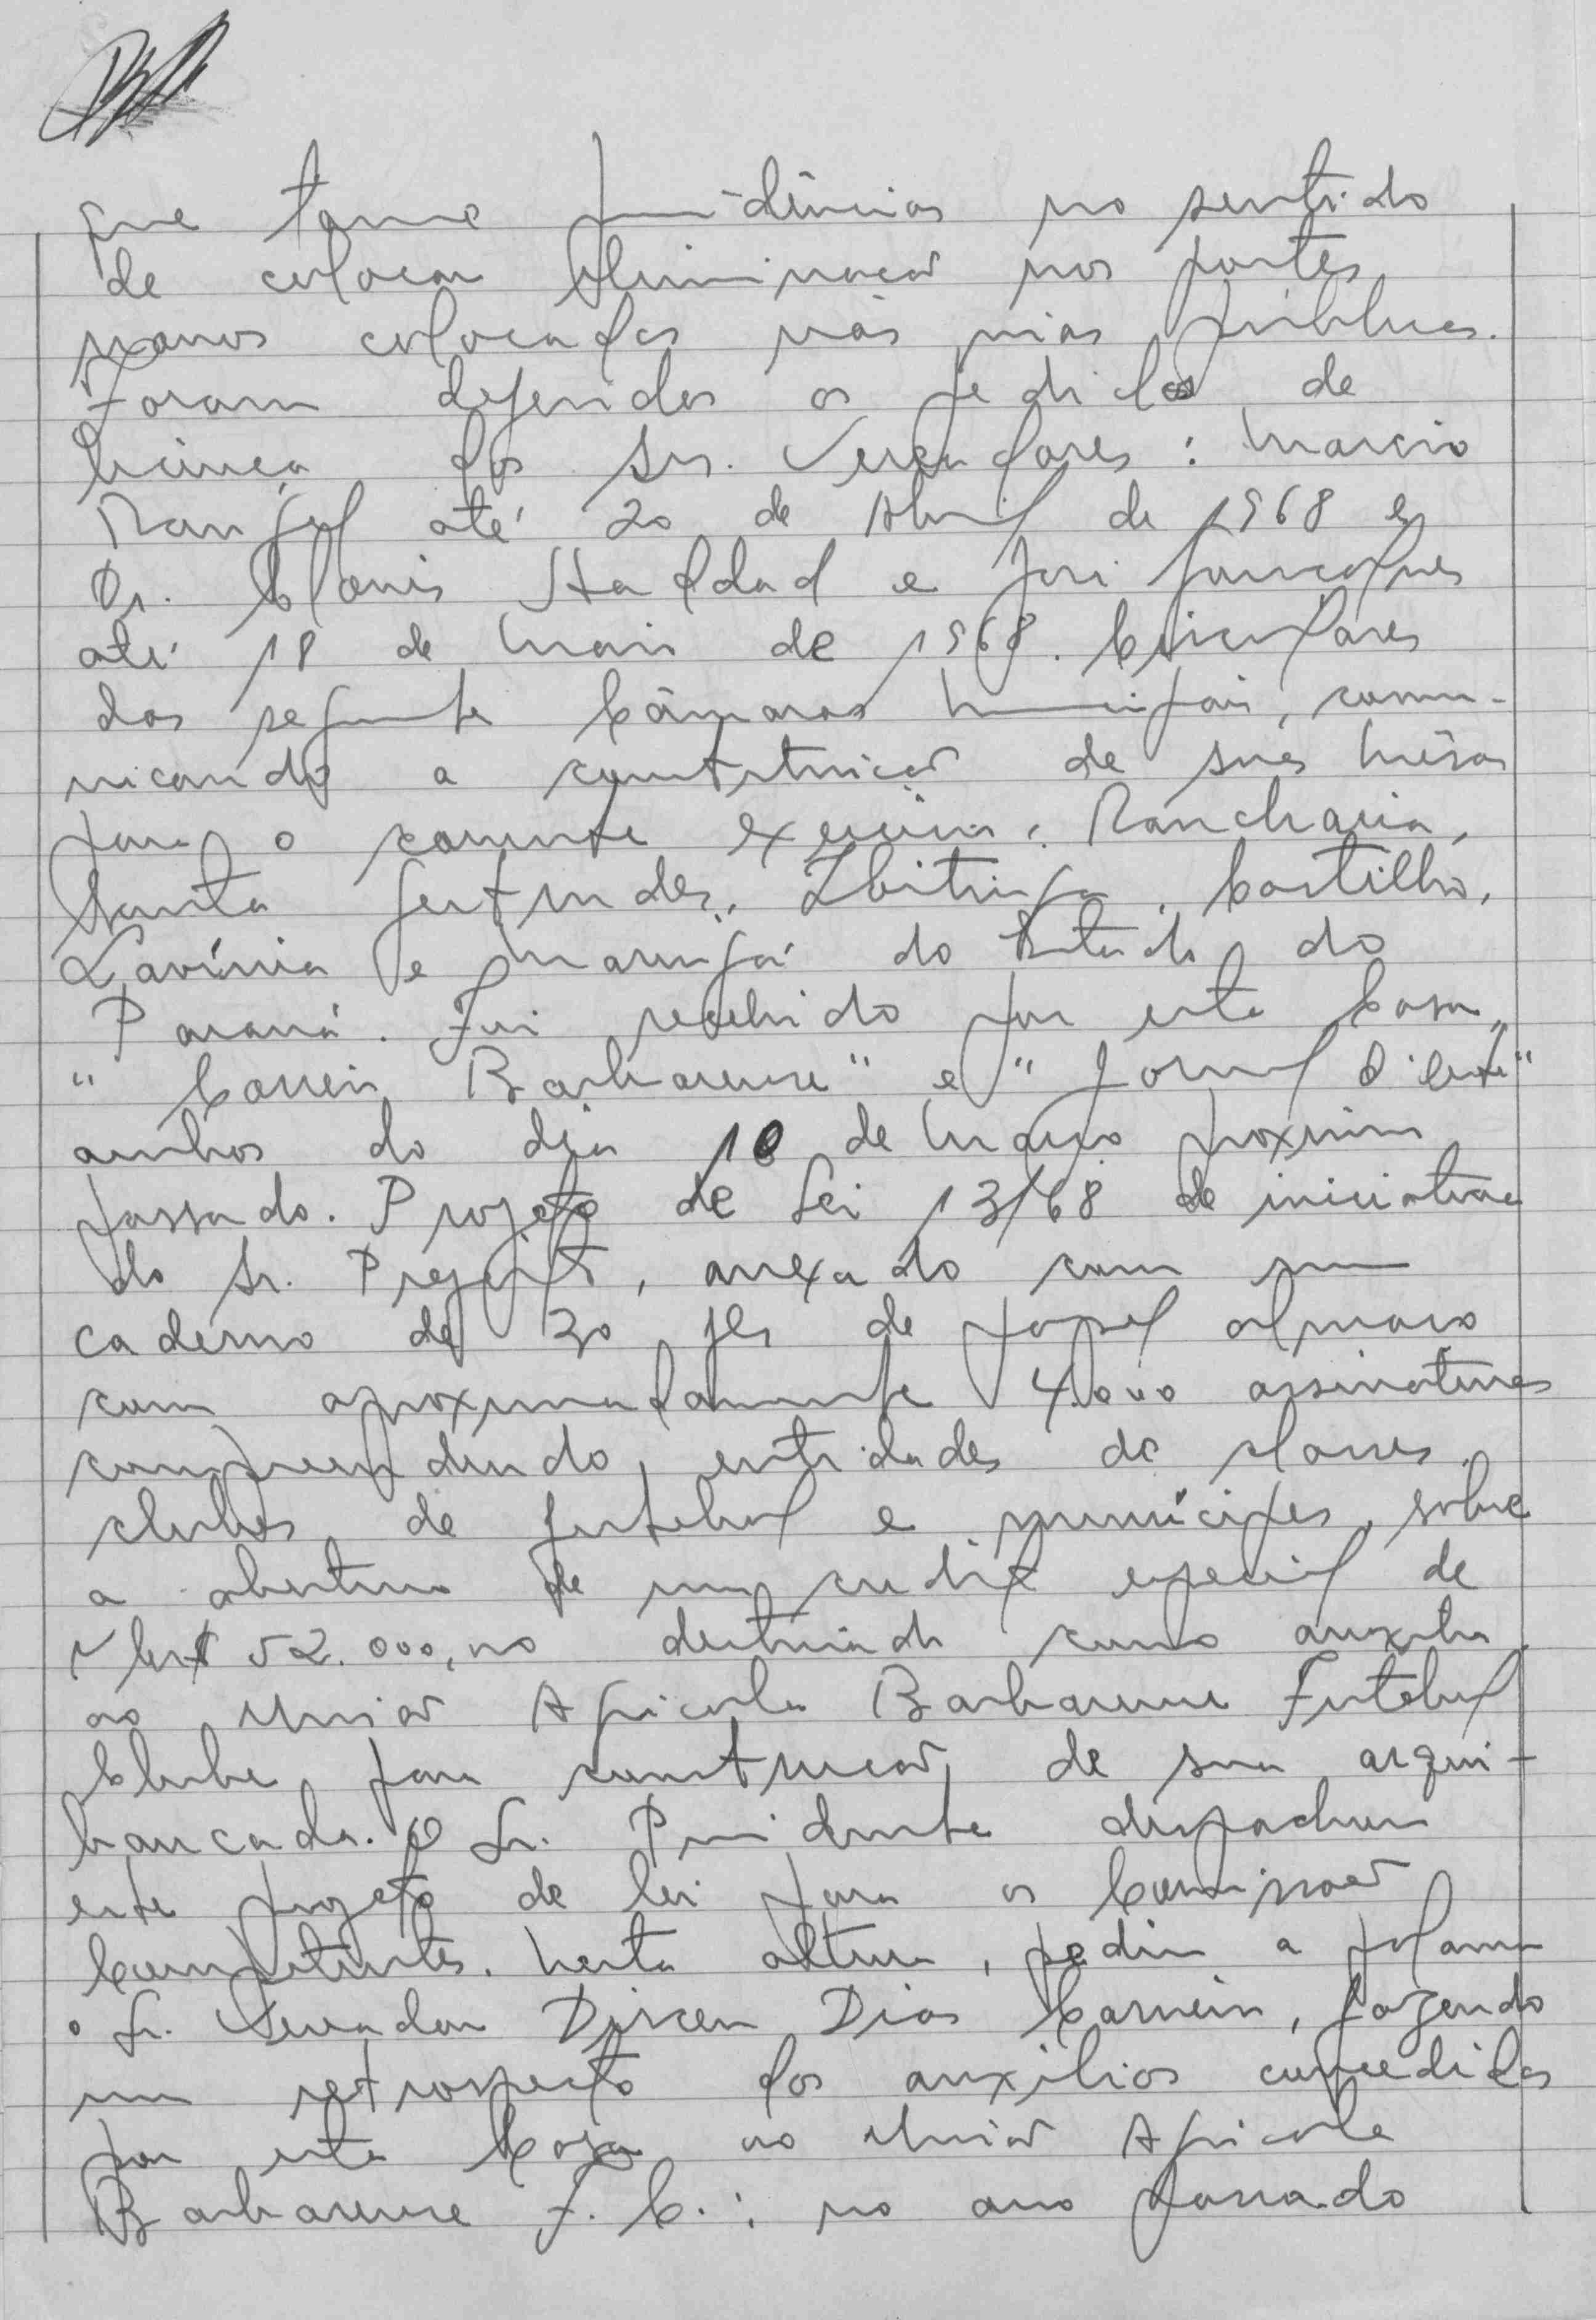 que tome providências no sentido
de colocar iluminação nos postes
novos colocados nas vias públicas.
Foram deferidos os pedidos de
licença dos Srs. Vereadores: Marcio
Rangel até 20 de Abril de 1968 e
Dr. Clovis Haddad e José
até 18 de Maio de 1968. Circulares
das seguinte Câmaras Municipais, comu-
nicando a constituição de suas mêsas
para o corrente exercício: Rancharia,
Santa Gertrudes, Ibitinga, Castilho,
Lavínia e Maringá do Estado do
Paraná. Foi recebido por esta Casa,
"Correio Barbarense" e "Jornal d'Oeste"
ambos do dia 10 de Março proximo
passado. Projeto de Lei 13/68 de iniciativa
do Sr. Prefeito, anexado com um
caderno de 30 fls de papel almaço
com aproximadamente 4.000 assinaturas
compreendendo, entidades de classes,
clubes de futebol e munícipes, sobre
a abertura de um credito especial de
NCr$ 52.000,00 destinado como auxilio
ao União Agricola Barbarense Futebol
Clube para construção de sua arqui-
bancada. O Sr. Presidente despachou
este projeto de lei para as Comissões
Competentes. Nesta altura, pediu a palavra
o Sr. Vereador Dirceu Dias Carneiro, fazendo
um retrospecto dos auxílios concedidos
por esta Casa ao União Agricola
Barbarense F. C.: no ano passado